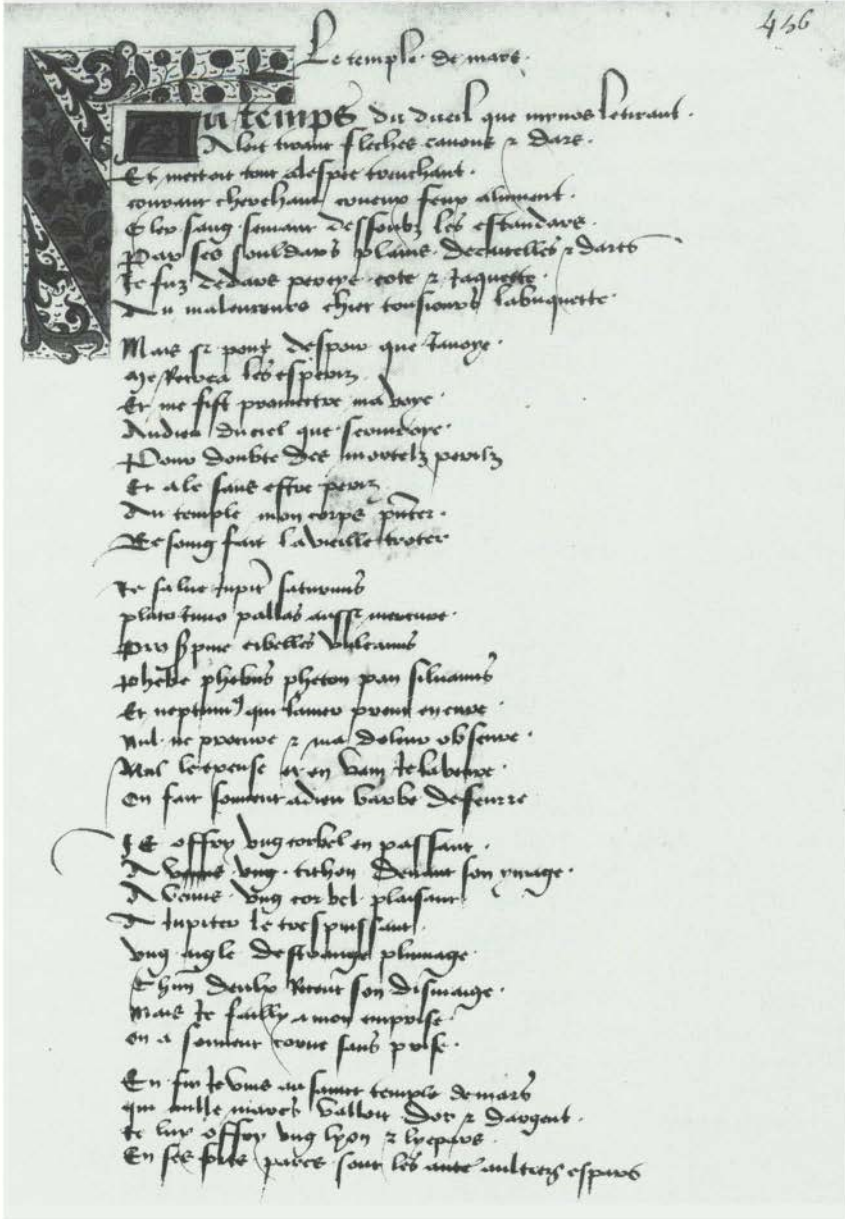 456
Le temple de mars
Au temps du dueil que mynos le tirant
Aloit tirant fleches canons & dars
Et mettoit tout alespee trenchant
courant cherchant crueux feux alumant
& ler sang semant dessoubz les estandars
Par ses souldars plains decutelles & darts
Je fuz dedars percye cote & Jaquette
Au maleureux chiet tousiours labuquette
Mais sr pont despoir que Javoye
me les esperiz
Et me fist promettre ma voye
Au dieu du ciel que
Pour doubte des mortelz perilz
Et ale sans estre periz
Au temple mon corps pnter
Besoing fait la vieille troter
Je salue Jupiter saturnus
pluto Juno pallas aussi mercure
Pro spine cibelles vulcanus
Phebe phebus pheton pan siluanus
Et neptunus qui lamer prent en cure
Nul ne procure & ma doleur obscure
Nul le et en vain Je labeure
On fait souuent a dieu barbe de feurre
Je offry ung corbel en passant
A venus ung tithon devant son ymage
A venus ung corbel plaisant
A Jupiter le trespuissant
ung aigle destrange plumage
Chun deulx son dismaige
Mais Je failly a mon emprise
On a souuent corne sans prise
En fin Je vins au sainct temple de mars
qui mille marcs valloit dor & dargent
Je luy offry ung lyon & lyepars
En ses fors parcs sont les aultiers espars